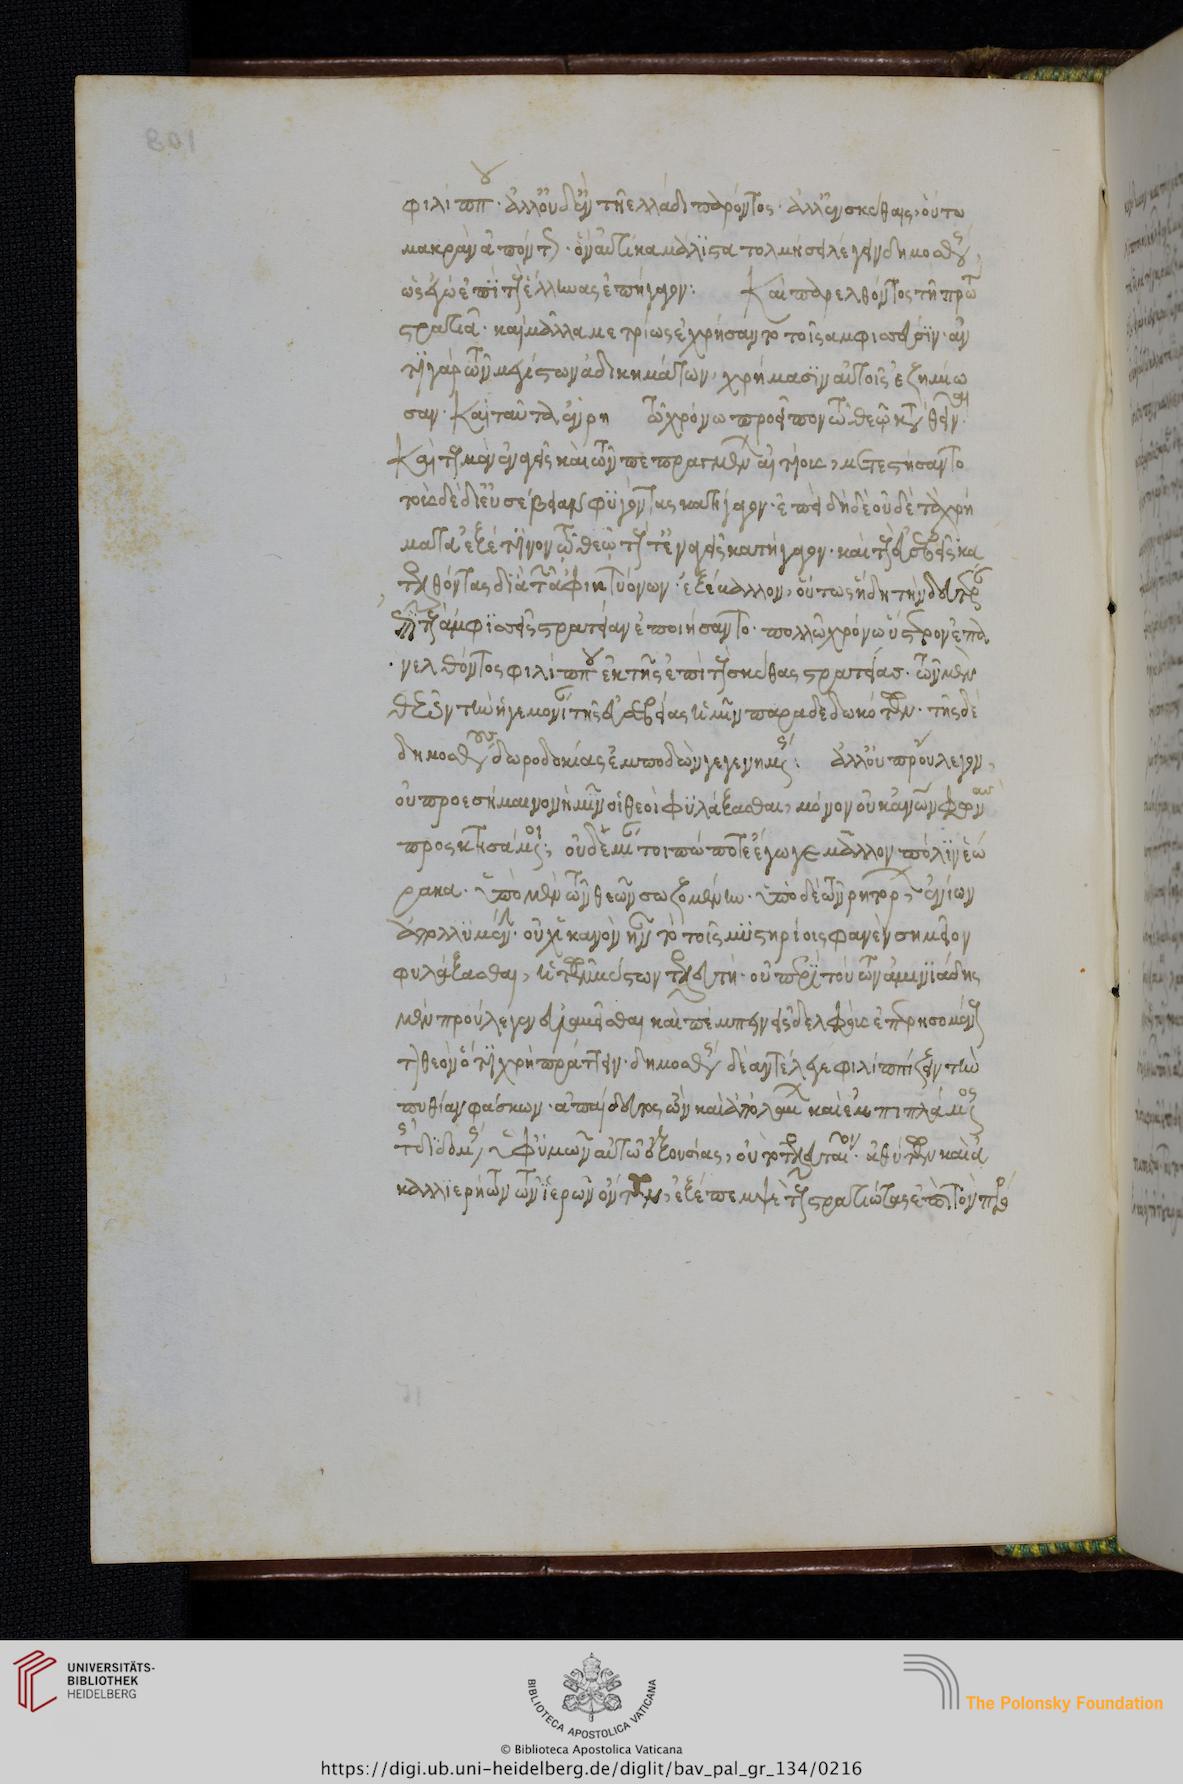 φιλίππου· ἀλλ' οὐδ' ἐν τῇ ἑλλάδι παρόντος· ἀλλ' ἐν σκύθαις, οὕτω
μακρὰν ἀπόντος· ὃν αὐτίκα μάλιστα τολμήσει λέγειν δημοσθένης,
ὡς ἐγὼ ἐπὶ τοὺς ἕλληνας ἐπήγαγον: Καὶ παρελθόντος τῇ πρώτῃ
στρατιᾷ· καὶ μάλλα μετρίως ἐχρήσαντο τοῖς αμφισσεῦσιν· ἀν
τὶ γὰρ τῶν μεγίστων ἀδικημάτων, χρήμασιν αὐτοῖς ἐζημίω
σαν· Καὶ ταῦτα ἐν ρη τῶ χρόνω προεῖπον τῶ θεῶ καταθεῖναι·
Καὶ τοὺς μὲν ἐναγεῖς καὶ τῶν πεπραγμένων αἰτίους, μετεστήσαντο
τοὺς δὲ δι' εὐσέβειαν φυγόντας κατήγαγον· ἐπειδὴ δὲ οὐδὲ τὰ χρή
ματα ἐξέτινον τῶ θεῶ τούς τ' ἐναγεῖς κατήγαγον· καὶ τοὺς εὐσεβεῖς κα
τελθόντας διὰ τῶν ἀμφικτυόνων ἐξέβαλλον, οὕτως ἤδη τὴν δευτέραν
ἐπὶ τοὺς ἀμφισσεῖς στρατείαν ἐποιήσαντο· πολλῶ χρόνω ὕστερον ἐπα
νελθόντος φιλίππου ἐκ τῆς ἐπὶ τοὺς σκύθας στρατείας· τῶν μὲν
θεῶν τὴν ἡγεμονίαν τῆς εὐσεβείας ἡμῖν παραδεδωκότων· τῆς δὲ
δημοσθένους δωροδοκίας ἐμποδὼν γεγενημένης: Ἀλλ' οὐ προύλεγον,
οὐ προεσήμαινον ἡμῖν οἱ θεοὶ φυλάξασθαι, μόνον οὐκ ἀνθρώπων φωνὰς
προσκτησάμενοι; οὐδεμίαν τοι πώποτε ἔγωγε μᾶλλον πόλιν ἑώ
ρακα· ὑπὸ μὲν τῶν θεῶν σωζομένην· ὑπὸ δὲ τῶν ρητόρων ἐνίων
ἀπολλυμένην· οὐχ ἱκανὸν ἦν τὸ τοῖς μυστηρίοις φανὲν σημεῖον
φυλάξασθαι, ἡ τῶν μυστῶν τελευτή· οὐ περὶ τούτων ἀμυνιάδης
μὲν προύλεγεν εὐλαβεῖσθαι καὶ πέμπειν εἰς δελφοὺς ἐπερησομένους
τὸν θεὸν ὅ τι χρὴ πράττειν· δημοσθένης δὲ αντέλεγε φιλιππίζειν τὴν
πυθίαν φάσκων· ἀπαίδευτος ὢν καὶ ἀπολαύων καὶ ἐμπιπλάμενος
τῆς διδομένης ὑφ' ὑμῶν αὐτῶ ἐξουσίας, οὐ τὸ τελευταῖον· ἀθύτων καὶ ἀ
καλλιερήτων τῶν ἱερῶν ὄντων, ἐξέπεμψε τοὺς στρατιώτας ἐπὶ τὸν πρό
UNIVERSITÄTS-
BIBLIOTHEK
HEIDELBERG
BIBLIOTECA APOSTOLICA VATICANA
The Polonsky Foundation
© Biblioteca Apostolica Vaticana
https://digi.ub.uni-heidelberg.de/diglit/bav_pal_gr_134/0216